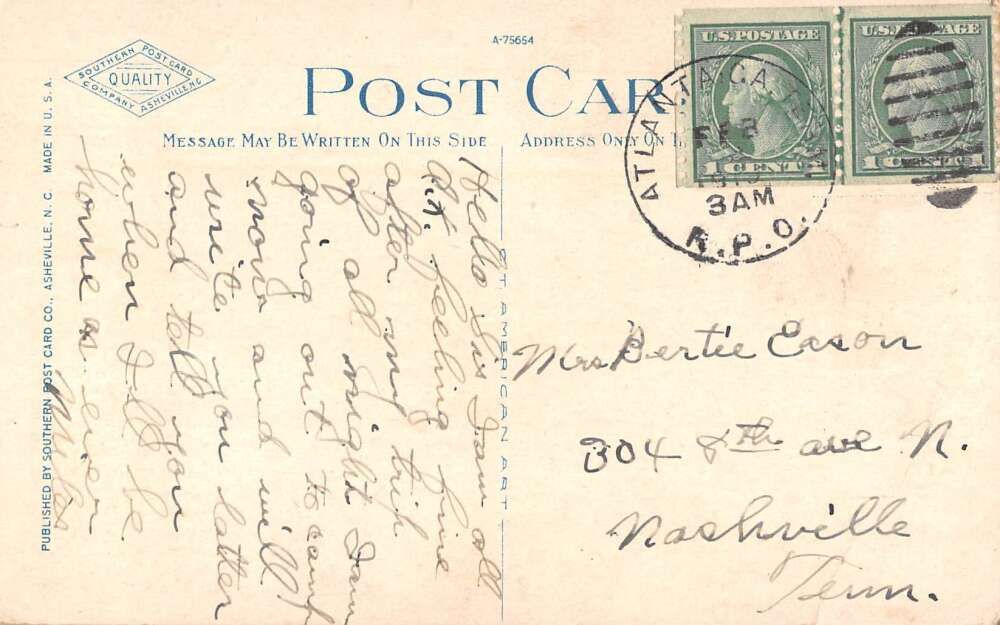 A-75654
SOUTHERN POST CARD
QUALITY
COMPANY ASHEVILLE, N.C.
POST CAR
MESSAGE MAY BE WRITTEN ON THIS SIDE
ADDRESS ONLY ON
U.S. POSTAGE
1 CENT 1
U.S. POSTAGE
1 CENT 1
ATLANTA, GA.
FEB
3AM
R.P.O.
Hello Sis I am all
rit. feeling fine
after my trip
of all night I am
going out to camp
now and will
write you latter
and tell you
when I ll be
home as ever
Miles
ST AMERICAN ART
Mrs Bertie Eason
304 8th ave N.
Nashville
Tenn.
PUBLISHED BY SOUTHERN POST CARD CO., ASHEVILLE, N. C. MADE IN U. S. A.